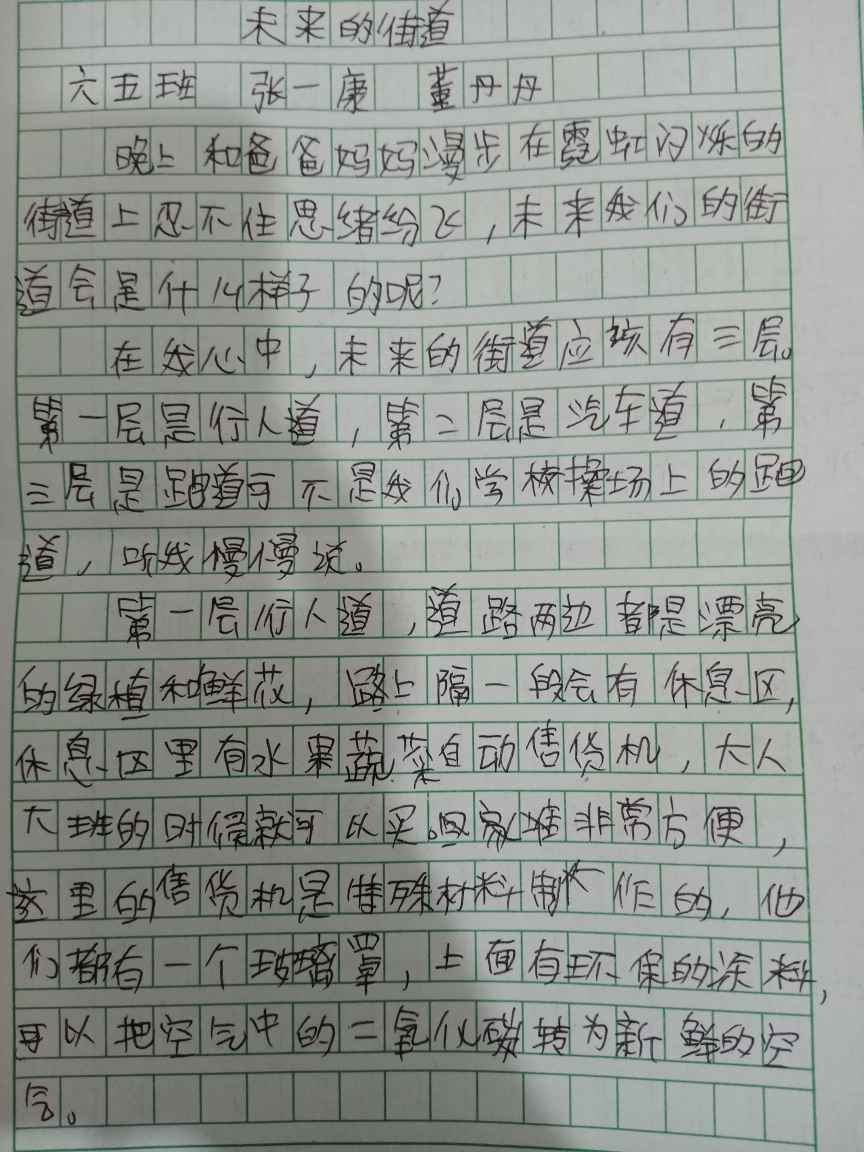 未来的街道
六五班 张一康 董丹丹
晚上和爸爸妈妈漫步在霓虹闪烁的
街道上忍不住思绪纷飞,未来我们的街
道会是什么样子的呢?
在我心中,未来的街道应该有三层。
第一层是行人道,第二层是汽车道,第
三层是跑道可不是我们学校操场上的跑
道,听我慢慢说。
第一层行人道,道路两边都是漂亮
的绿植和鲜花,路上隔一段会有休息区,
休息区里有水果蔬菜自动售货机,大人
下班的时候就可以买回家啦非常方便,
这里的售货机是特殊材料制作的,他
们都有一个玻璃罩,上面有环保的涂料,
可以把空气中的二氧化碳转为新鲜的空
气。